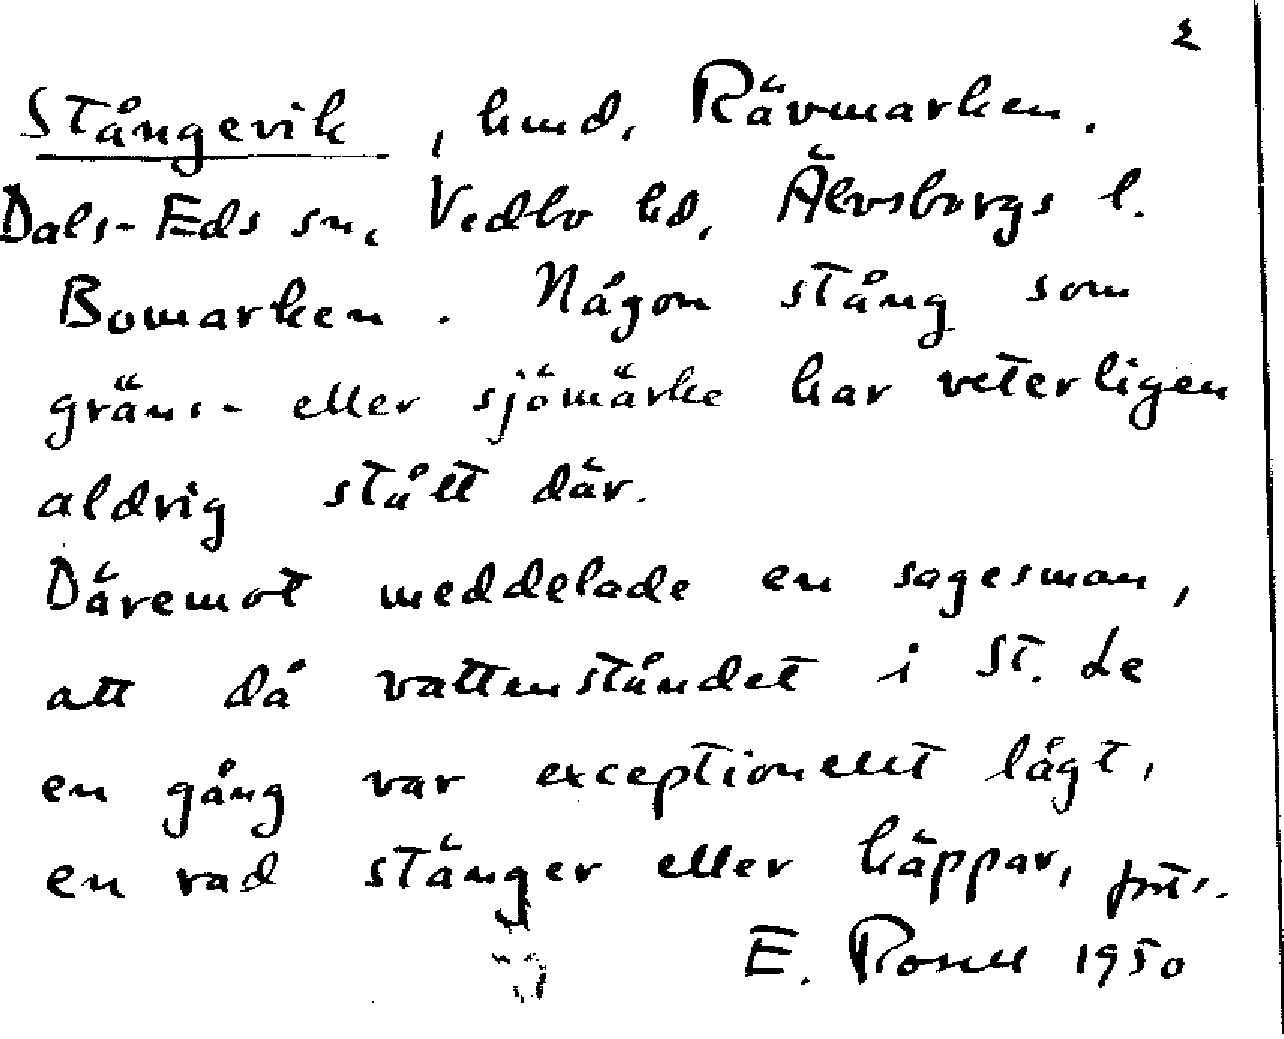 2
Stångevik, hmd. Rävmarken.
Dals-Eds sn, Vedbo hd, Älvsborgs l.
Bomarken. Någon stång som
gräns- eller sjömärke har veterligen
aldrig stått där.
Däremot meddelade en sagesman,
att då vattenståndet i St. Le
en gång var exceptionellt lågt,
en rad stänger eller käppar, forts.
E. Rosell 1950